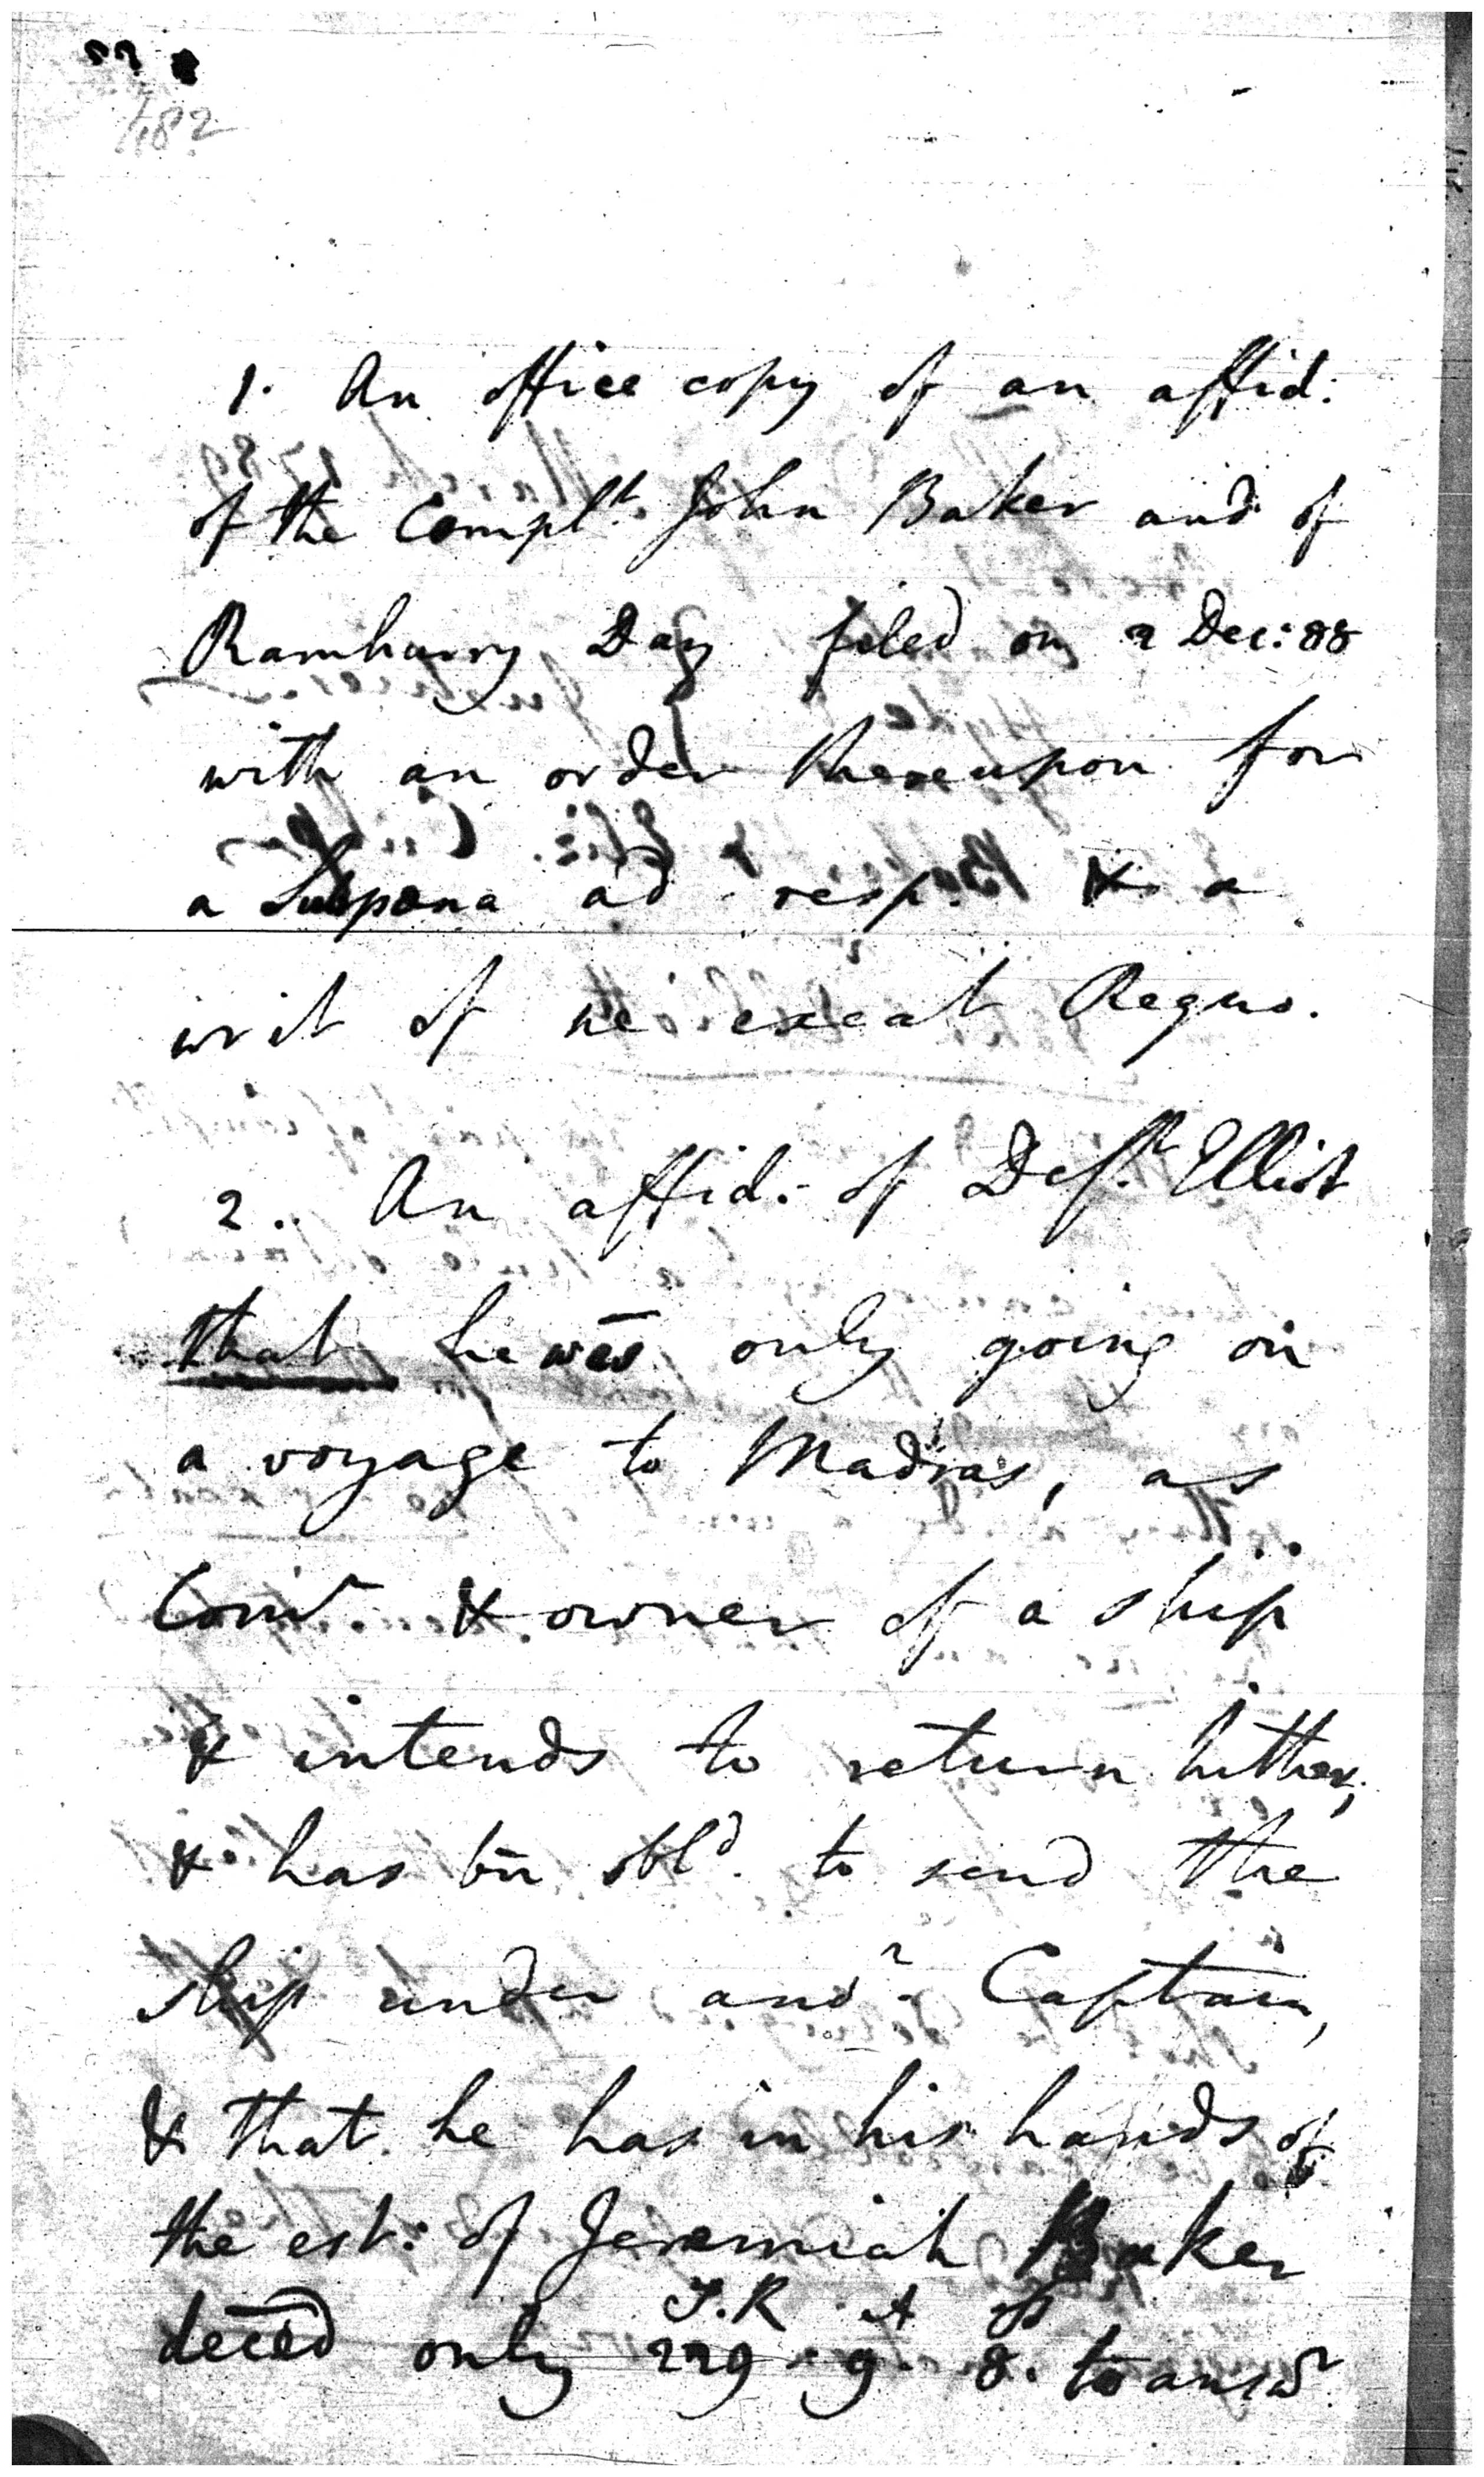 482
1. An office copy of an affid:
of the Complt. John Baker and of
Ramhurry Day filed on 2 Dec: 88
with an order thereupon for
a Subpœna ad resp. & a
writ of ne exeat Regno.
2. An affid: of Deft. Elliot
that he was only going on
a voyage to Madras, as
Comr & owner of a ship
& intends to return hither,
& has bn obld. to send the
ship under anor. Captain,
& that he has in his hands of
the est: of Jeremiah Baker
S.R A P
deced only 229. 9. 8. to answr